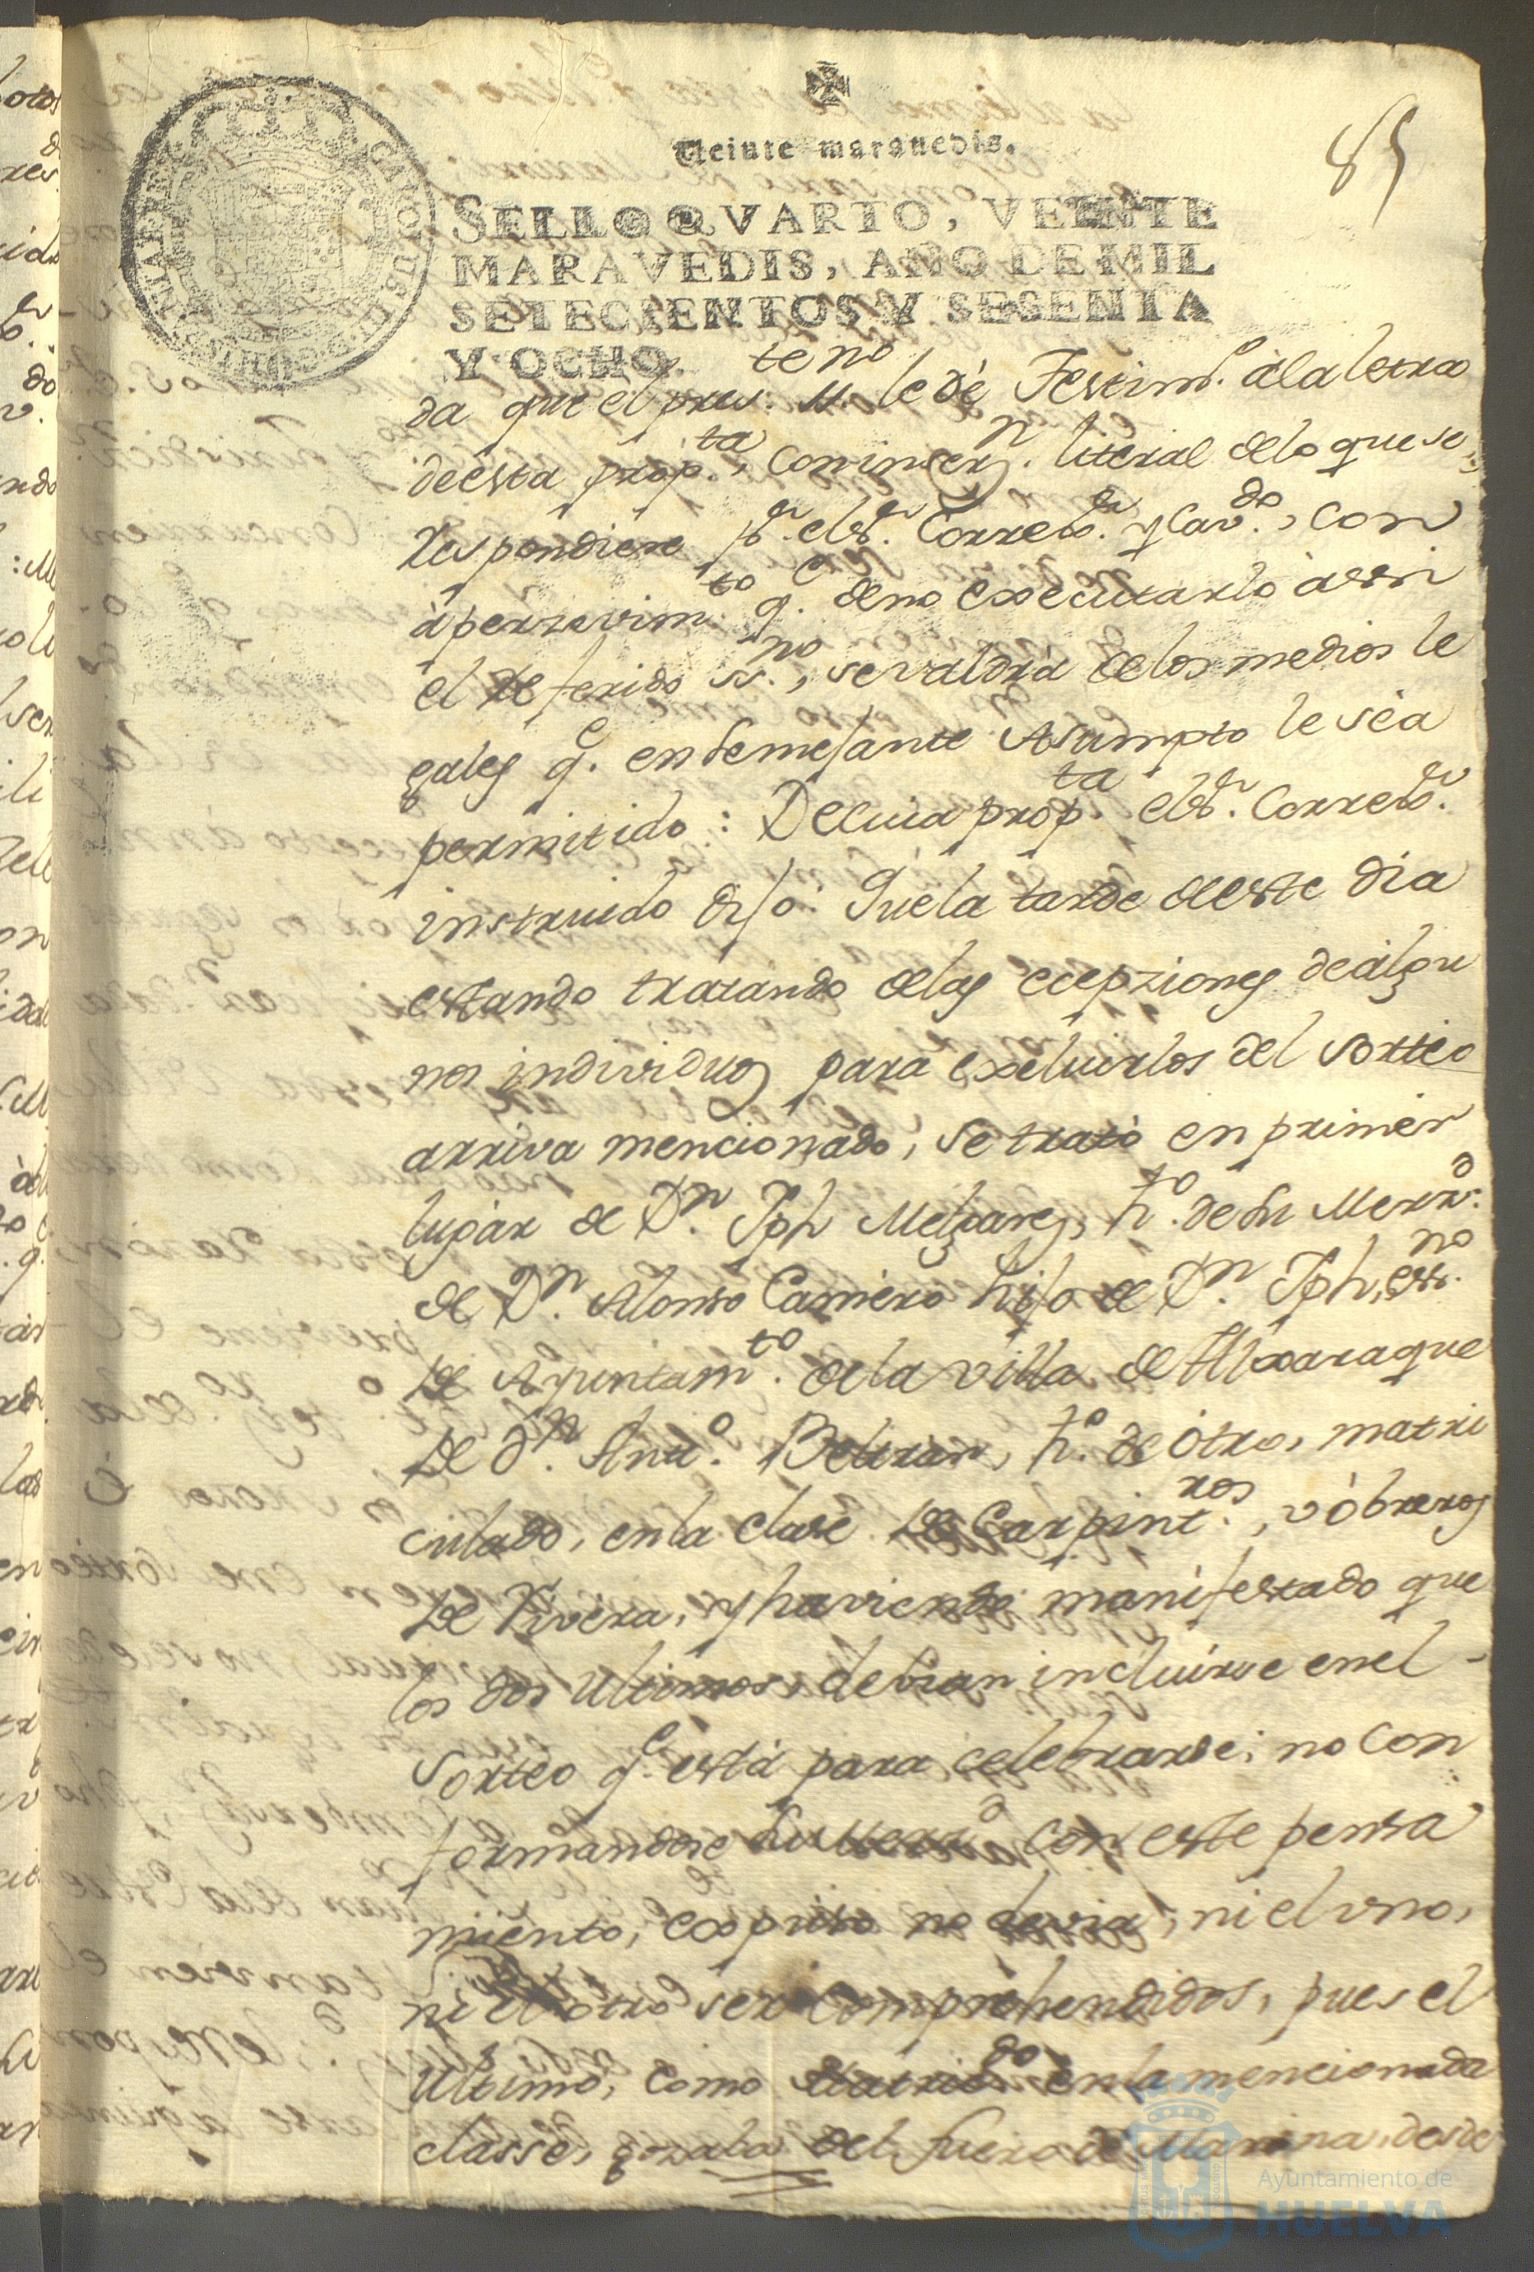 85
Veinte maravedis.
SELLO QVARTO, VEINTE
MARAVEDIS, AÑO DE MIL
SETECIENTOS Y SESENTA
Y OCHO.
da que el pres.te ss.no le dè Testim.o ála letra
de esta prop.ta, con inser.n literal de lo que se
respondiere p.r el s.r Corre.or y Cav.do, con
àperzevim.to q.e de no executarlo àssi
el referido ss.no, se valdrá de los medios le
gales q.e en semejante Asumpto le séa
permitido: De cuia prop.ta el s.r Corre.or
instruido dijo: Que la tarde de este dia
estando tratando de las ecepziones de álgu
nos individuos para excluirlos del sorteo
arriva mencionado, se trató en primer
lugar de D.n Jph Melgarej, h.o de su Merz.d
de D.n Alonso Camèro hijo de D.n Jph, ess.no
de Ayuntam.to de la villa de Aljaraque
de D.n Ant.o Beltran, h.o de ótro, matri
culado, en la clase de Carpint.ros, v óbreros
de Rivera, y haviendo manifestado que
los dos Ultimos, debian incluirse en el
Sorteo q.e está para celebrarse; no con
formandose su merz.d con este pensa
miento, expuso no devia, ni el vno,
ni el otro ser comprehendidos, pues el
Ultimo, como matric.do en la mencionada
classe, gozaba del fuero de Marina, desde
Ayuntamiento de
HUELVA